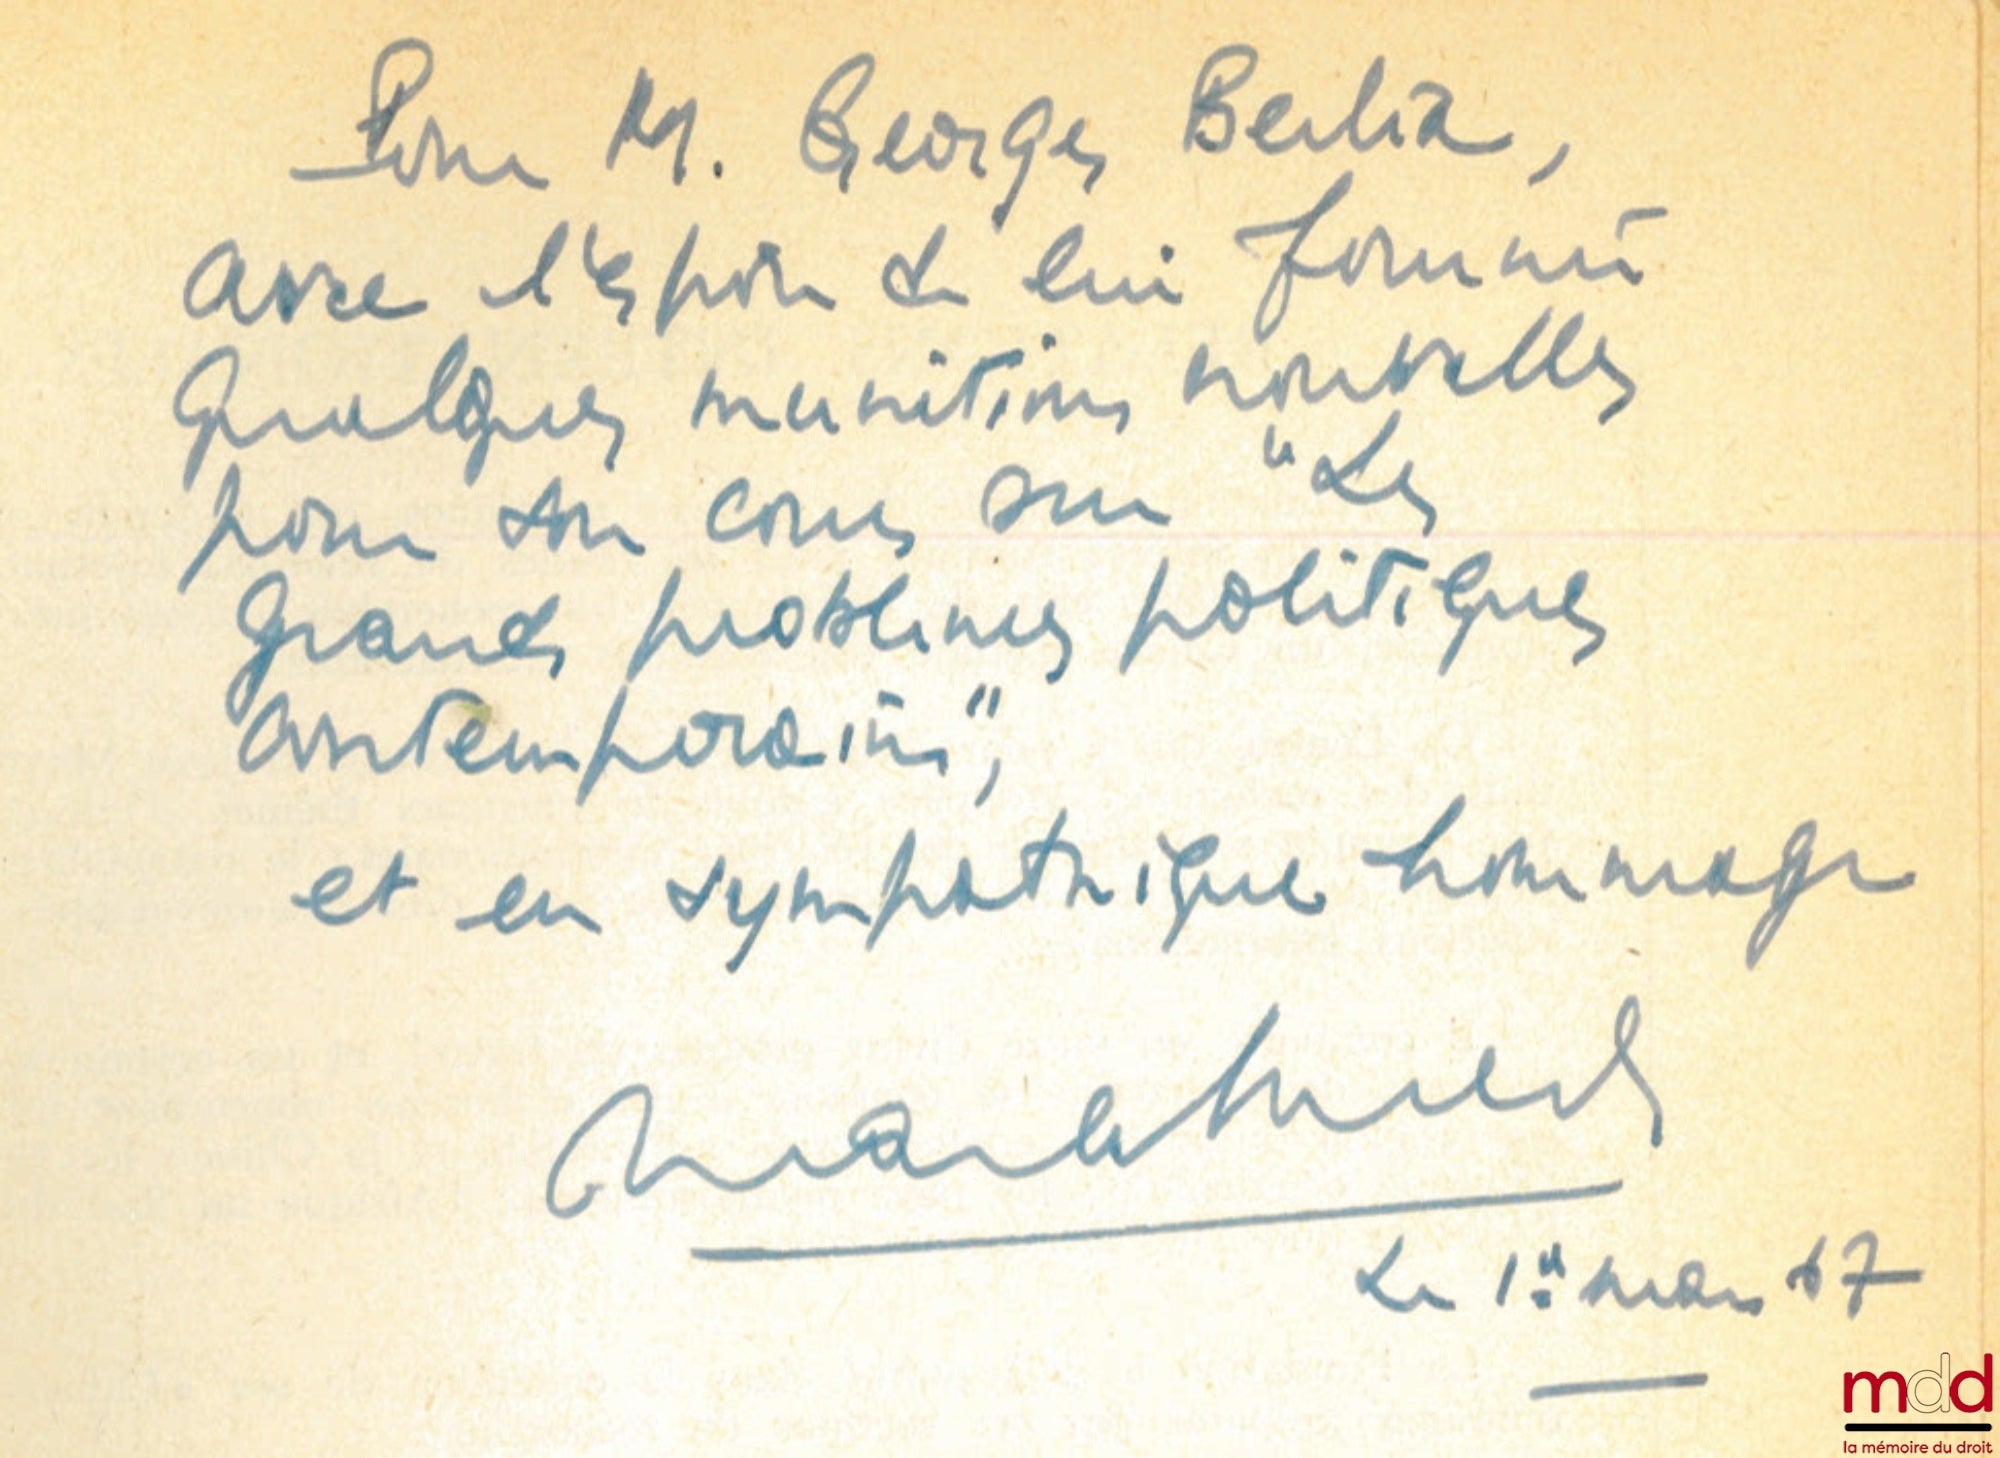 Pour M. Georges Berlia,
avec l'espoir de lui fournir
quelques munitions nouvelles
pour son cours sur "Les
grands problèmes politiques
contemporains",
et en sympathique hommage
Le 1er mars 67
mdd
la mémoire du droit